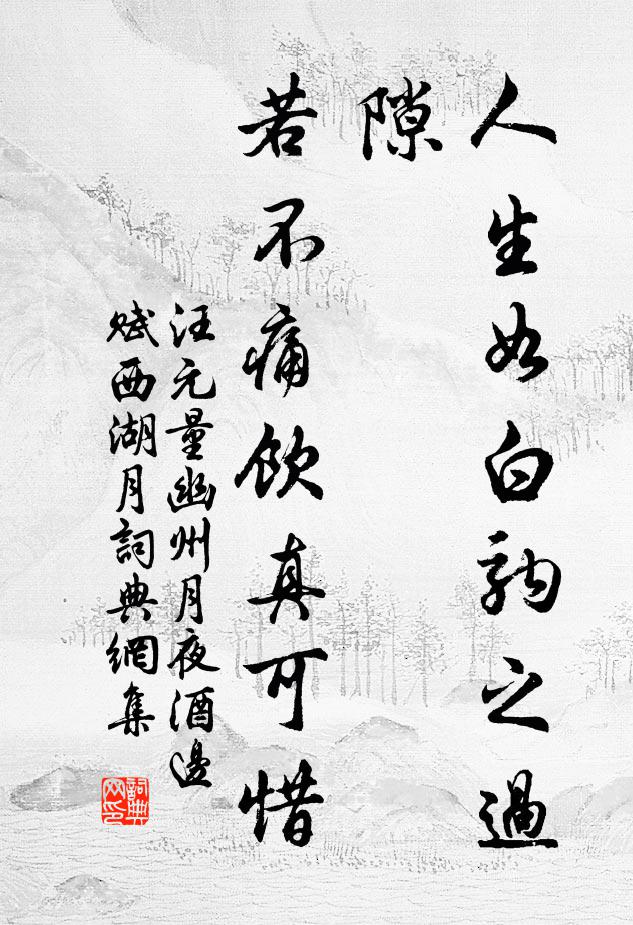 人生如白駒之過
隙
若不痛飲真可惜
汪元量幽州月夜酒邊
賦西湖月詞典網集
詞典
网印